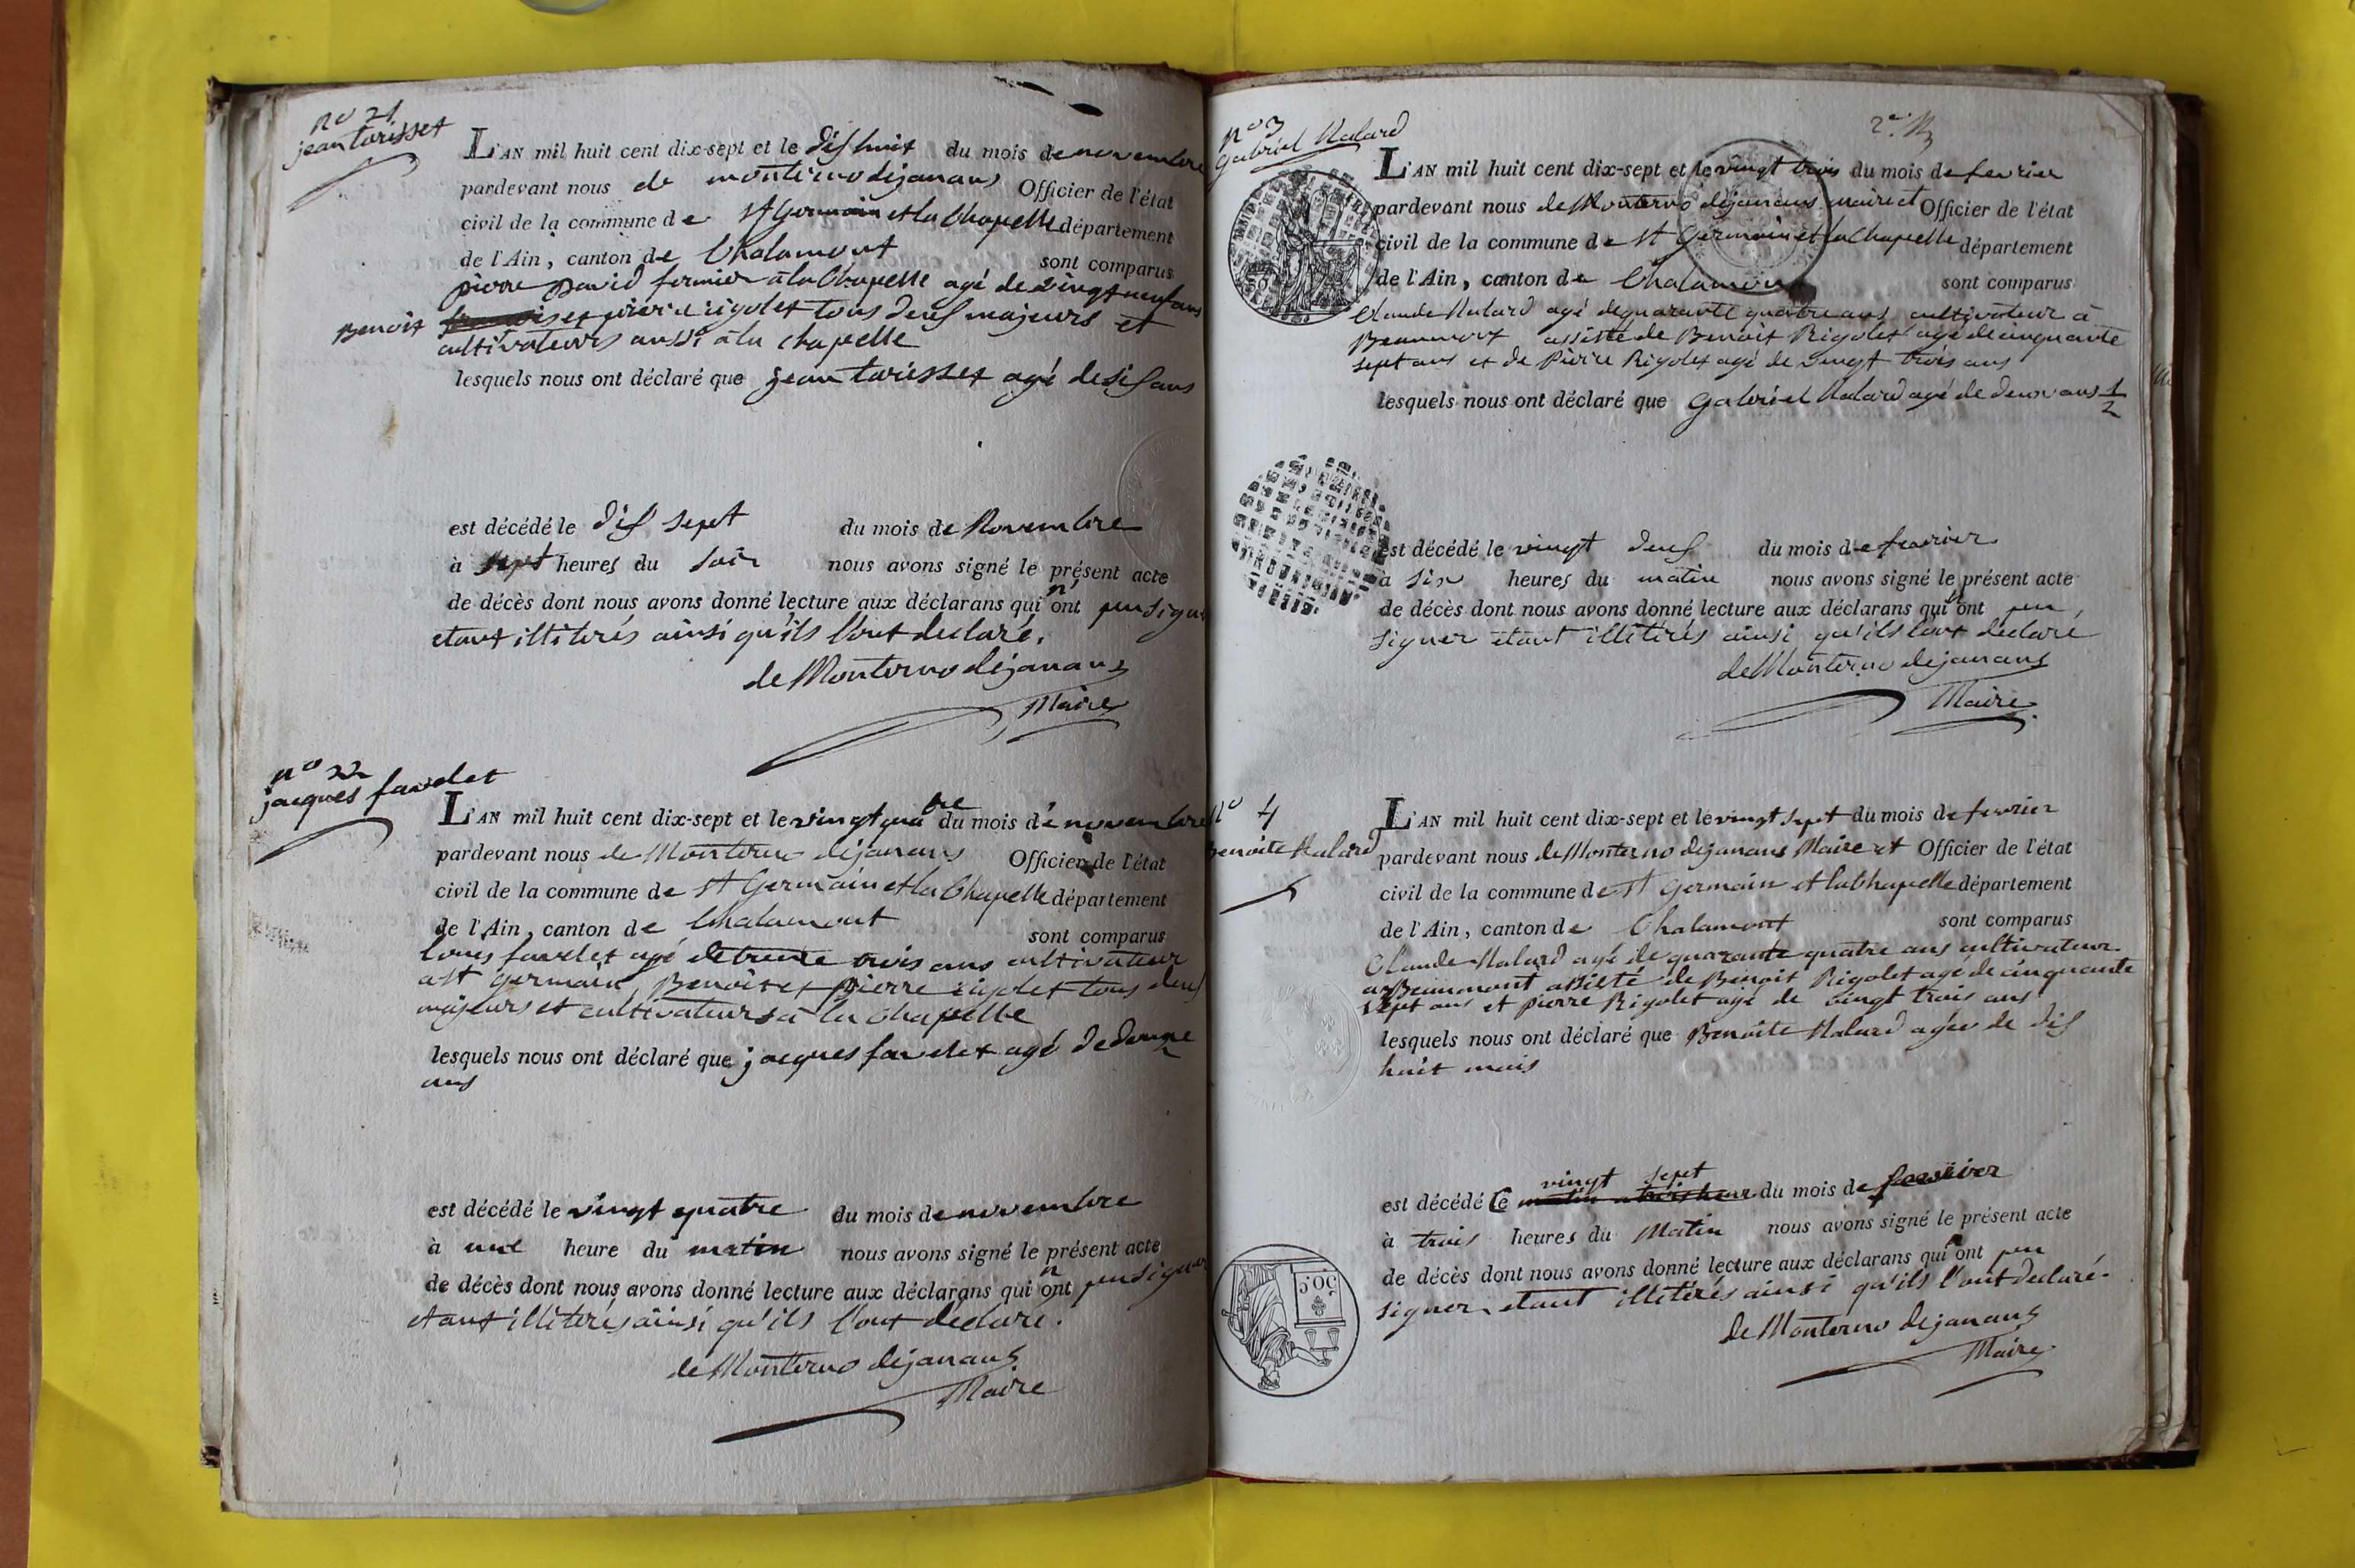 no 21
jean tarisset
L'AN mil huit cent dix-sept et le dis huit du mois de novembre
pardevant nous de monterno dejanans Officier de l'état
civil de la commune de St Germain et la Chapelle département
de l'Ain, canton de Chalamont sont comparus
pierre David fermier a la Chapelle agé de vingt neuf ans
Benoit et pierre rigolet tous deus majeurs et
cultivateurs aussi a la chapelle
lesquels nous ont déclaré que jean tarisset agé de sis ans
est décédé le dis sept du mois de Novembre
à sept heures du soir nous avons signé le présent acte
de décès dont nous avons donné lecture aux déclarans qui n'ont peu signer
etant illitérés ainsi qu'ils l'ont declaré.
de Monterno dejanans
Maire
no 22
jacques favelet
L'AN mil huit cent dix-sept et le vingt quatre du mois de novembre
pardevant nous de Monterno dejanans Officier de l'état
civil de la commune de St Germain et la Chapelle département
de l'Ain, canton de Chalamont sont comparus
louis favelet agé de trente trois ans cultivateur
a St germain, Benoit et pierre rigolet tous deus
majeurs et cultivateurs a la Chapelle
lesquels nous ont déclaré que jacques favelet agé de
ans
est décédé le vingt quatre du mois de novembre
à une heure du matin nous avons signé le présent acte
de décès dont nous avons donné lecture aux déclarans qui n'ont peu signer
etant illitérés ainsi qu'ils l'ont déclaré.
de Monterno dejanans
Maire
2e
no 3
gabriel Malard
L'AN mil huit cent dix-sept et le vingt trois du mois de fevrier
pardevant nous de Monterno dejanans maire et Officier de l'état
civil de la commune de St Germain et la Chapelle département
de l'Ain, canton de Chalamont sont comparus
Claude Malard agé de quarante quatre ans cultivateur à
Beaumont assisté de Benoit Rigolet agé de cinquante
sept ans et de Pierre Rigolet agé de vingt trois ans
lesquels nous ont déclaré que gabriel Malard agé de deux ans 1/2
est décédé le vingt deus du mois de fevrier
à six heures du matin nous avons signé le présent acte
de décès dont nous avons donné lecture aux déclarans qui n'ont peu
signer etant illitérés ainsi qu'ils l'ont declaré
de Monterno dejanans
Maire
no 4
Benoite Malard
L'AN mil huit cent dix-sept et le vingt sept du mois de fevrier
pardevant nous de Monterno dejanans Maire et Officier de l'état
civil de la commune de St Germain et la Chapelle département
de l'Ain, canton de Chalamont sont comparus
Claude Malard agé de quarante quatre ans cultivateur
a Beaumont assisté de Benoit Rigolet agé de cinquante
sept ans et pierre Rigolet agé de vingt trois ans
lesquels nous ont déclaré que Benoite Malard agée de dis
huit mois
vingt sept
est décédé le du mois de fevrier
à trois heures du Matin nous avons signé le présent acte
de décès dont nous avons donné lecture aux déclarans qui n'ont peu
signer etant illitérés ainsi qu'ils l'ont declaré.
de Monterno dejanans
Maire
50 C